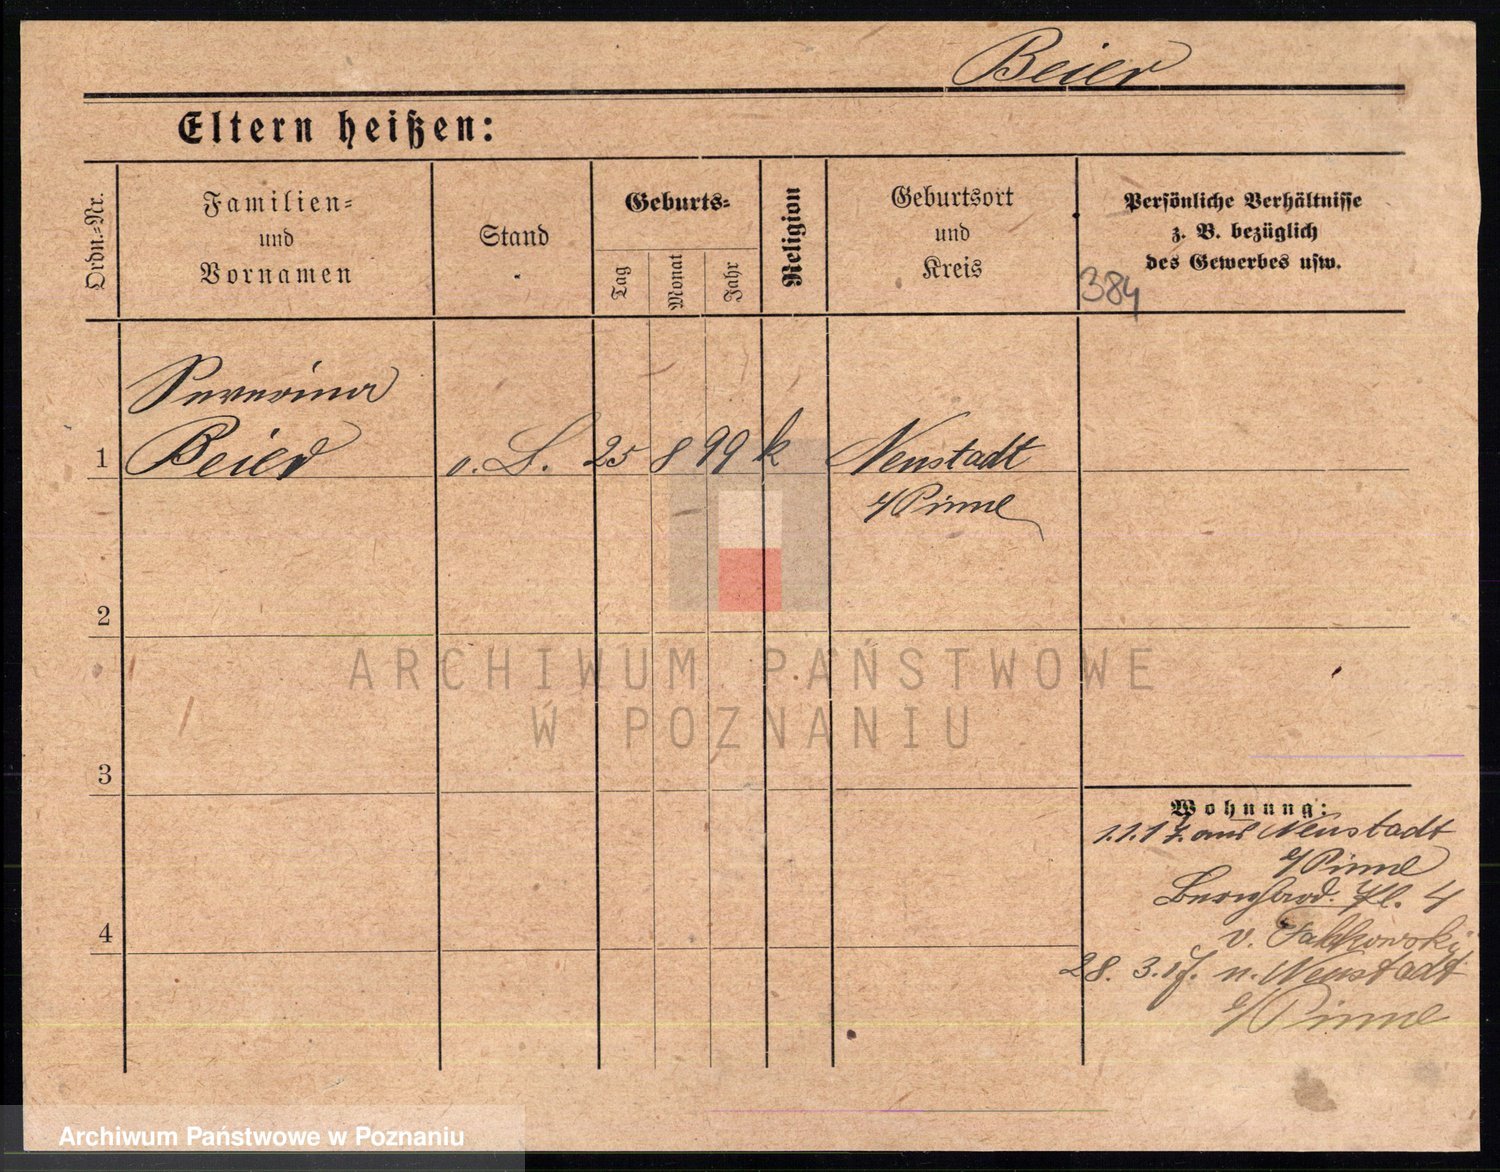 Beier
Eltern heißen:
Ordn.-Nr.
Familien-
und
Vornamen
Stand
Geburts-
Tag
Monat
Jahr
Religion
Geburtsort
und
Kreis
Persönliche Verhältnisse
z. B. bezüglich
des Gewerbes usw.
384
Severina
1 Beier o. S. 25 8 99 k Neustadt
b/Pinne
2
3
4
Wohnung:
1.1.17. aus Neustadt
b/Pinne
Bernhard. Pl. 4
v.
28. 3. 17. n. Neustadt
b/Pinne
ARCHIWUM PAŃSTWOWE
W POZNANIU
Archiwum Państwowe w Poznaniu